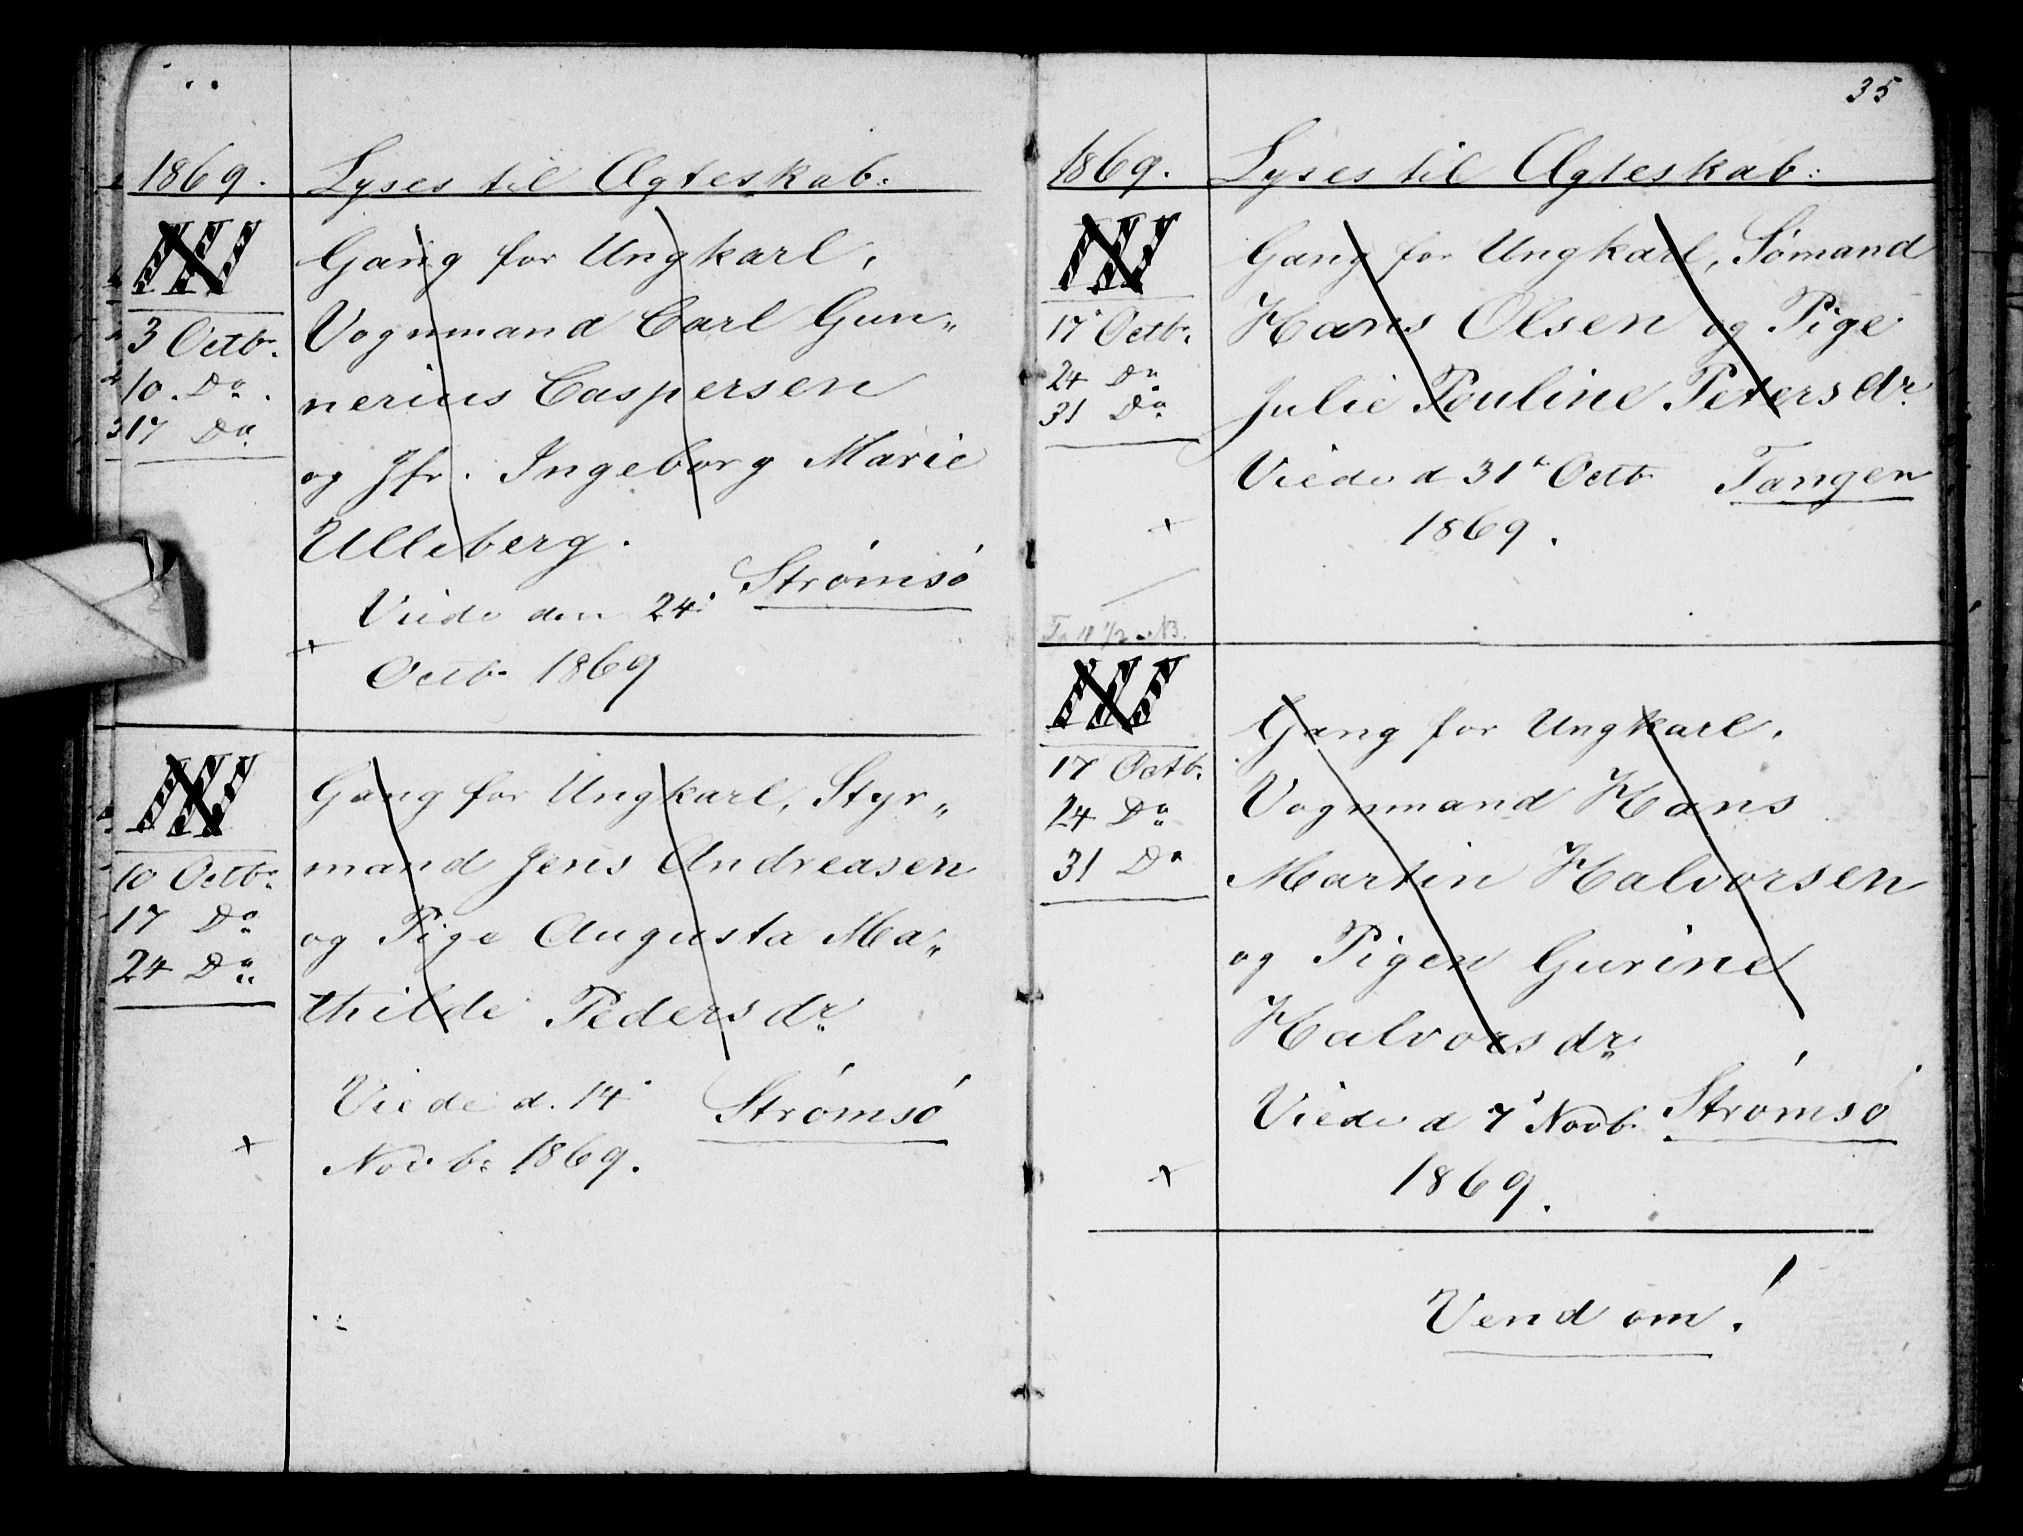 1869. Lyses til Ægteskab:
III
Gang for Ungkarl,
3 Octb. Vognmand Carl Gun„
10. Do. nerius Caspersen
17 Do
og Jfr. Ingeborg Marie
Ulleberg.
Strømsö
Viede den 24
+
Octb. 1869
III
Gang for Ungkarl, Styr„
10 Octb. mand Jens Andreasen
17 Do og Pige Augusta Ma„
24 Do
thilde Pedersdr
Viede d. 14 Strømsö
+
Novb. 1869.
35
1869. Lyses til Ægteskab:
III
Gang for Ungkarl, Sömand
17 Octb. Hans Olsen og Pige
24 Do
31 Do Julie Pouline Petersdr
Viede d 31 Octb Tangen
+ 1869.
III
Gang for Ungkarl,
17 Octb.
24 Do Vognmand Hans
31 Do Martin Halvorsen
og Pigen Gurine
Halvorsdr
Viede d 7 Novb. Strømsö
+ 1869.
Vend om!